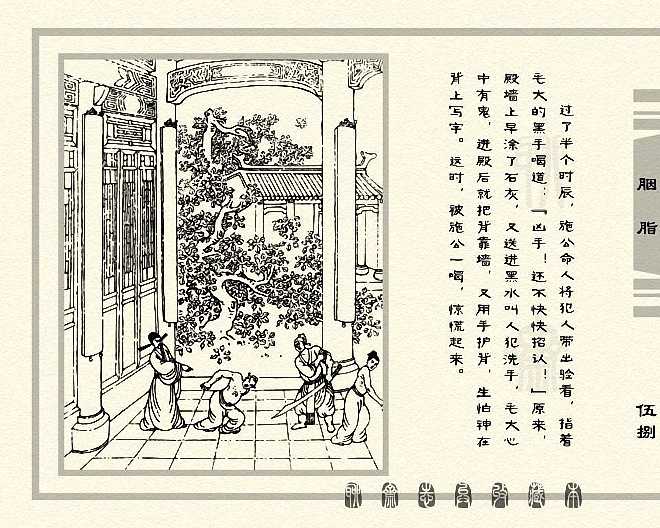 过了半个时辰，施公命人将犯人带出验看，指着
毛大的黑手喝道：「凶手！还不快快招认！」原来，
殿墙上早涂了石灰，又送进黑水叫人犯洗手，毛大心
中有鬼，进殿后就把背靠墙，又用手护背，生怕神在
背上写字。这时，被施公一喝，惊慌起来。
胭脂
伍捌
聊斋志异收藏本